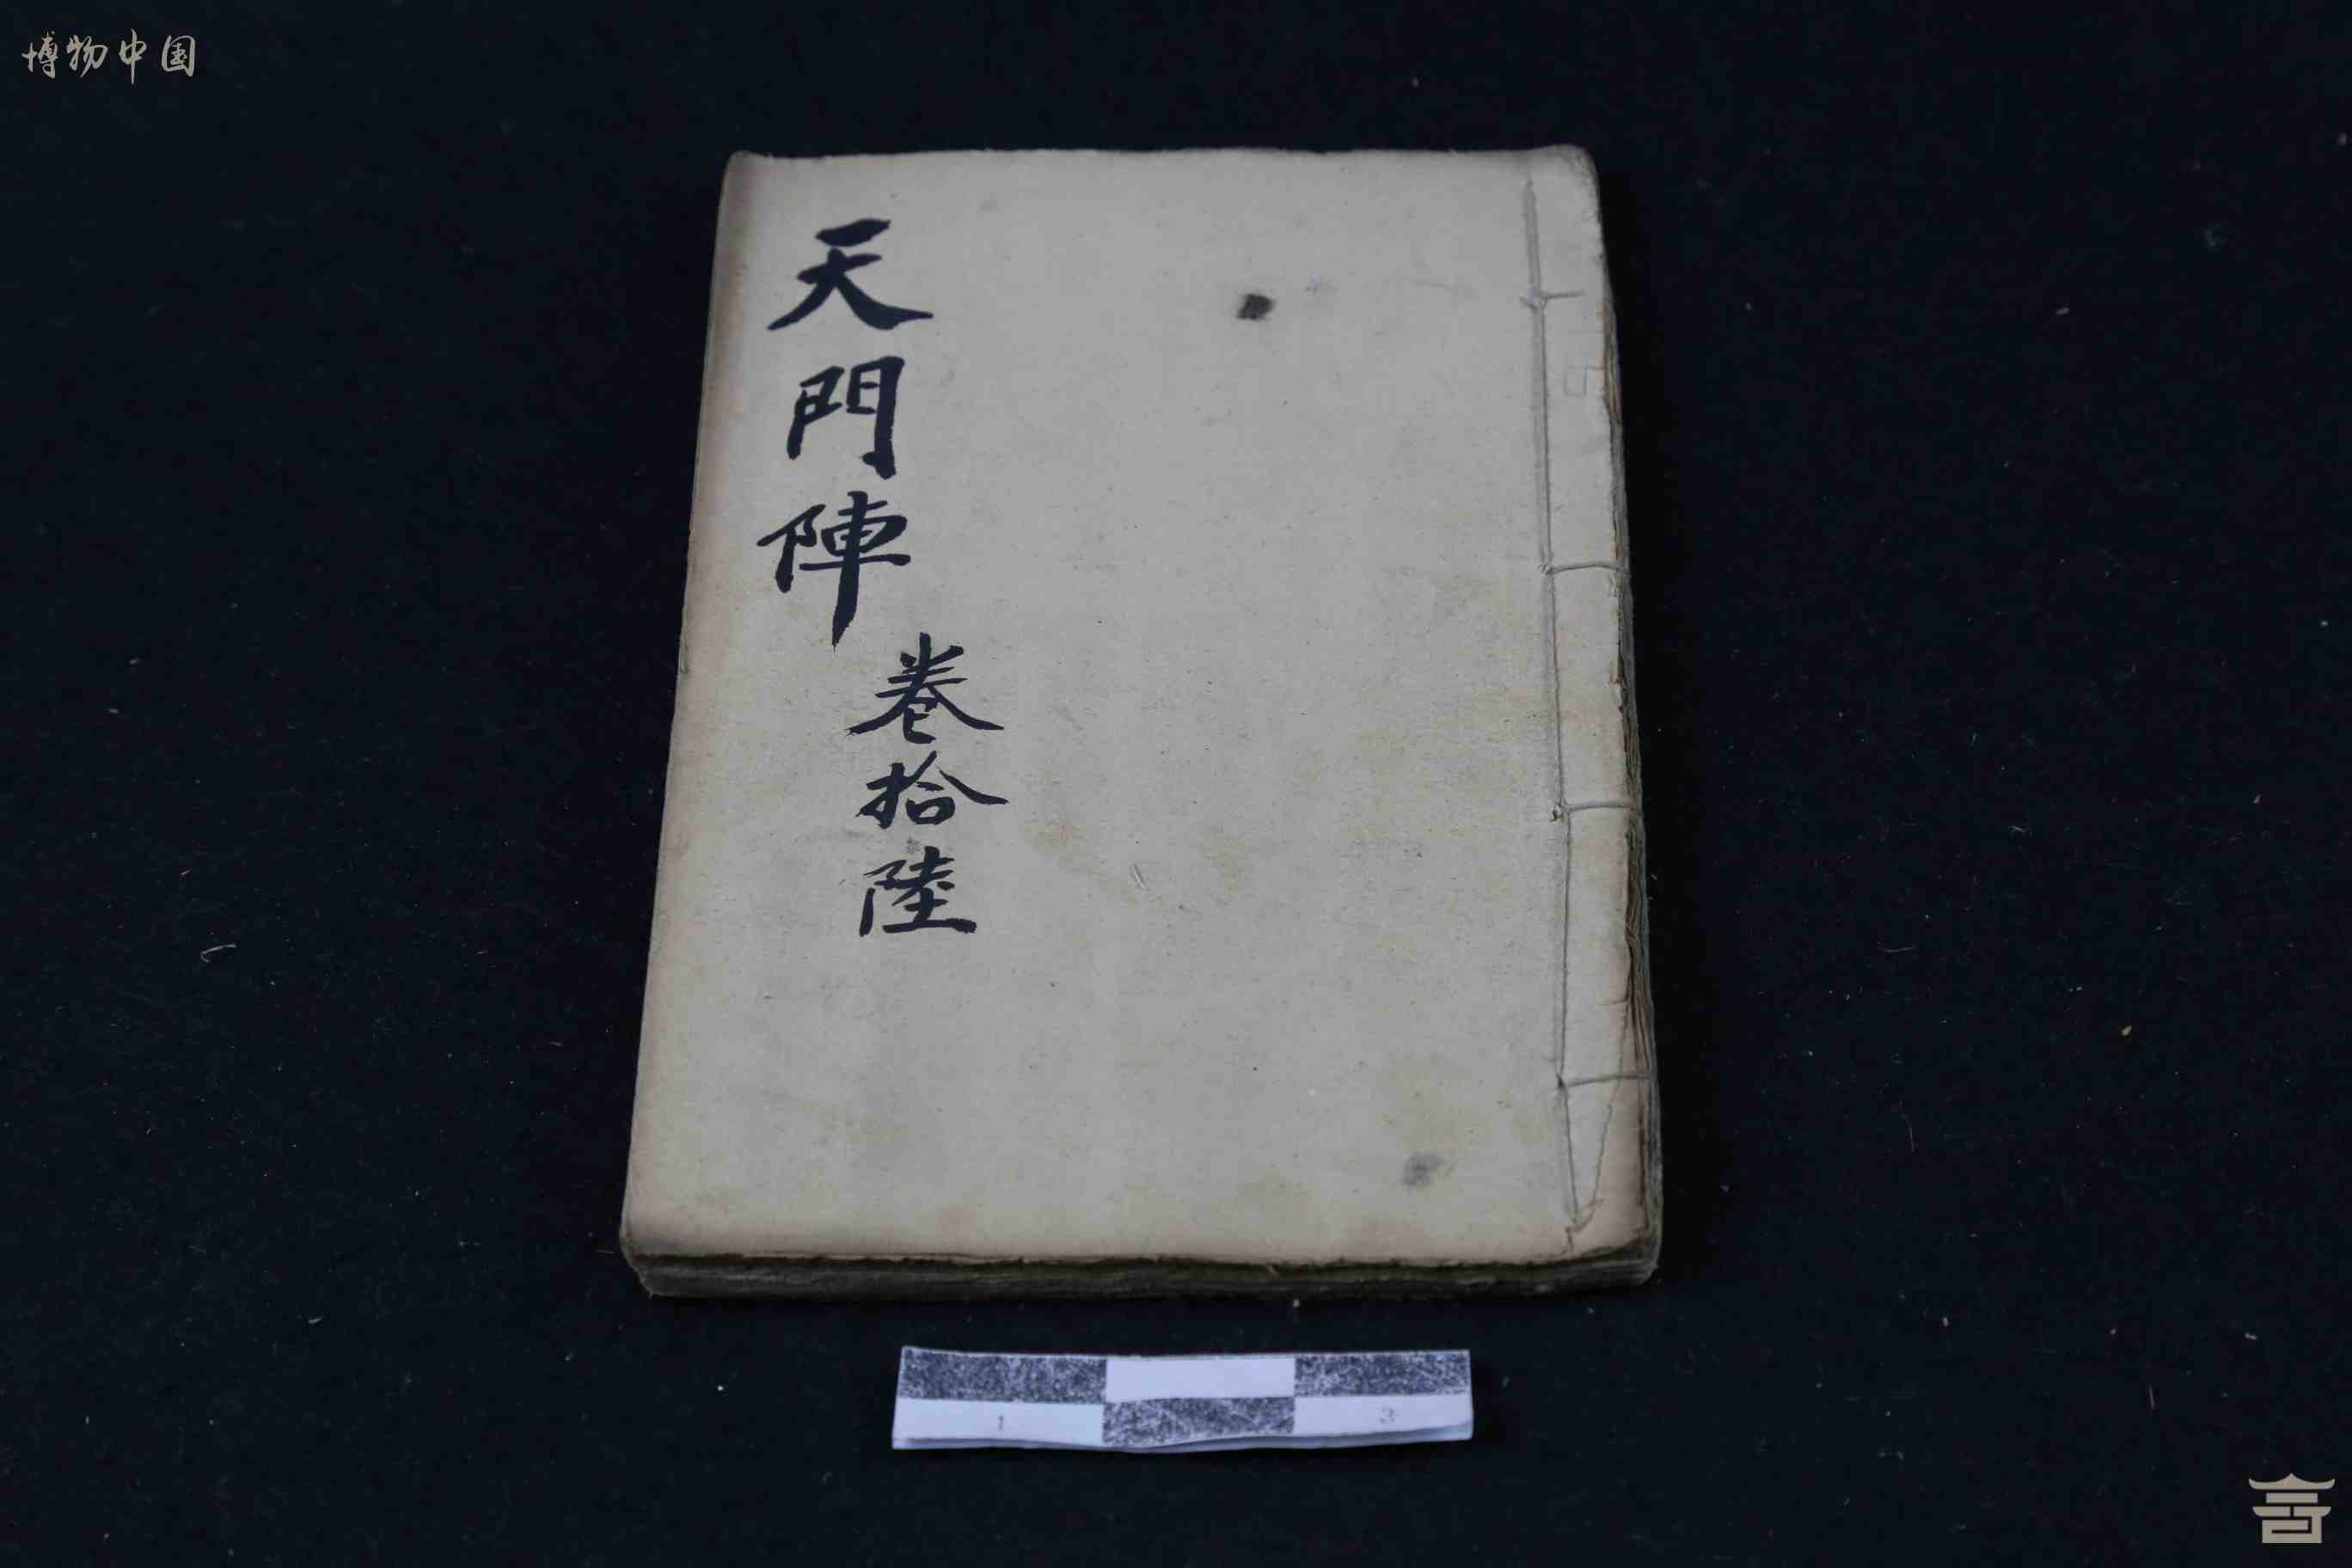 博物中国
天門陣
卷拾陸
1
3